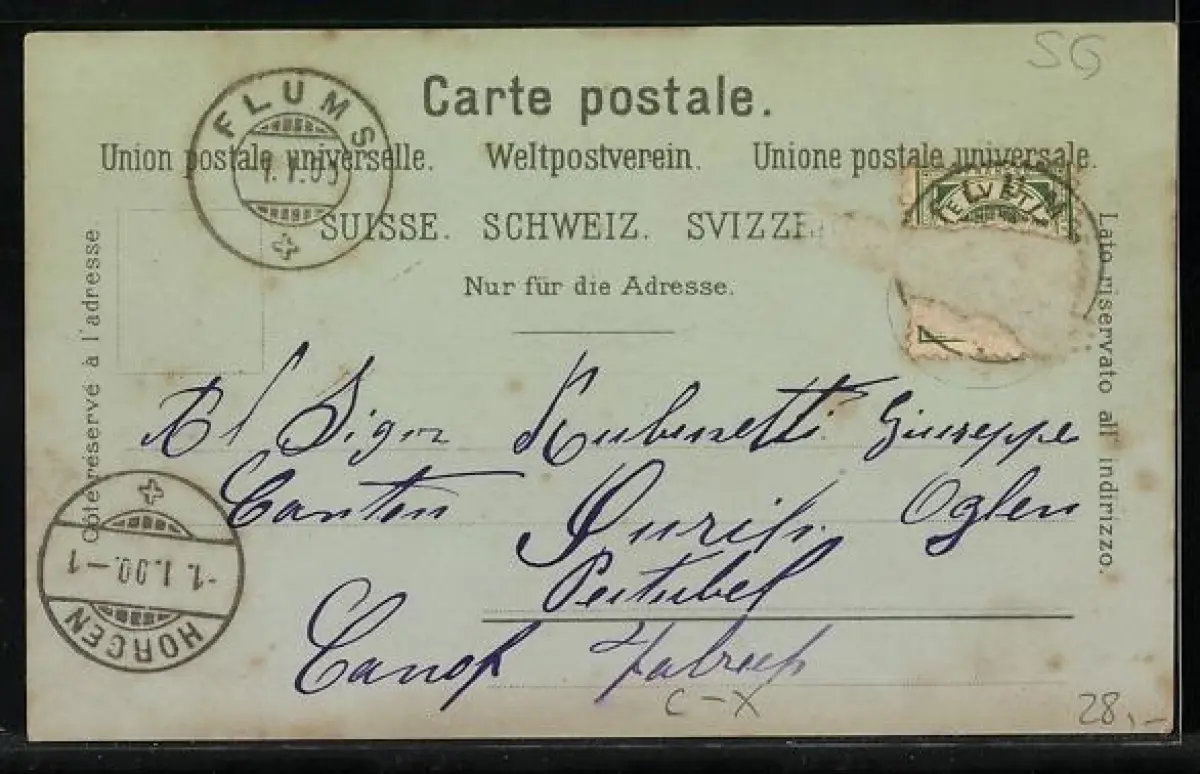 SG
Carte postale.
Union postale universelle. Weltpostverein. Unione postale universale.
SUISSE. SCHWEIZ. SVIZZE
Nur für die Adresse.
Côté réservé à l'adresse
Lato riservato all' indirizzo.
FLUMS
HELVETIA
Al Sigor Giuseppe
Canton Oglen
HORGEN
-1.I.00.-1
C-X
28,-